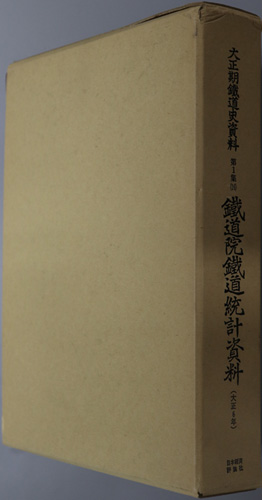 大正期鐵道史資料
第1集
鐵道院鐵道統計資料
(大正4年)
日本経済
評論社